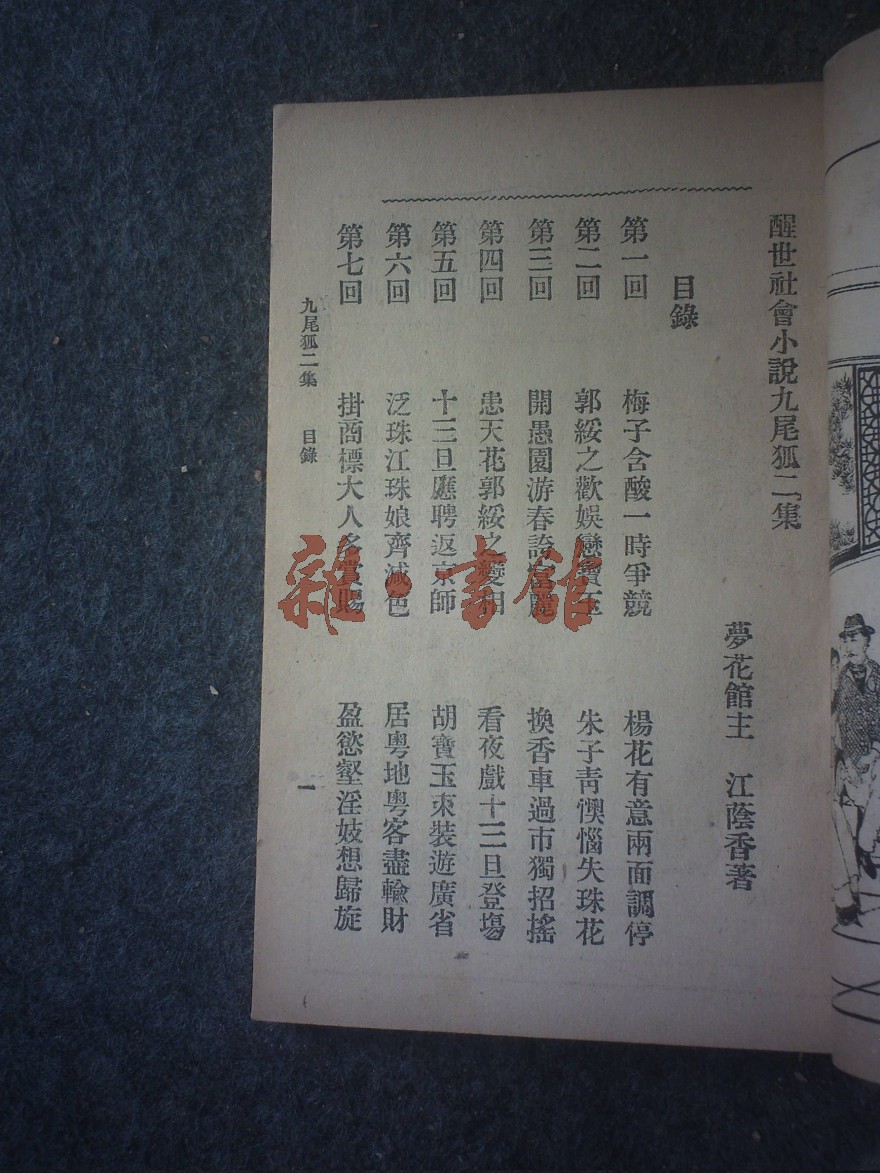 醒世社會小說九尾狐二集
夢花館主 江蔭香著
目錄
第一回 梅子含酸一時爭競 楊花有意兩面調停
第二回 郭綏之歡娛戀寶玉 朱子青懊惱失珠花
第三回 開愚園游春誇富麗 換香車過市獨招搖
第四回 患天花郭綏之變相 看夜戲十三旦登塲
第五回 十三旦應聘返京師 胡寶玉束裝遊廣省
第六回 泛珠江珠娘齊減色 居粵地粵客盡輸財
第七回 掛商標大人多賞賜 盈慾壑淫妓想歸旋
九尾狐二集 目錄 一
雜·書館